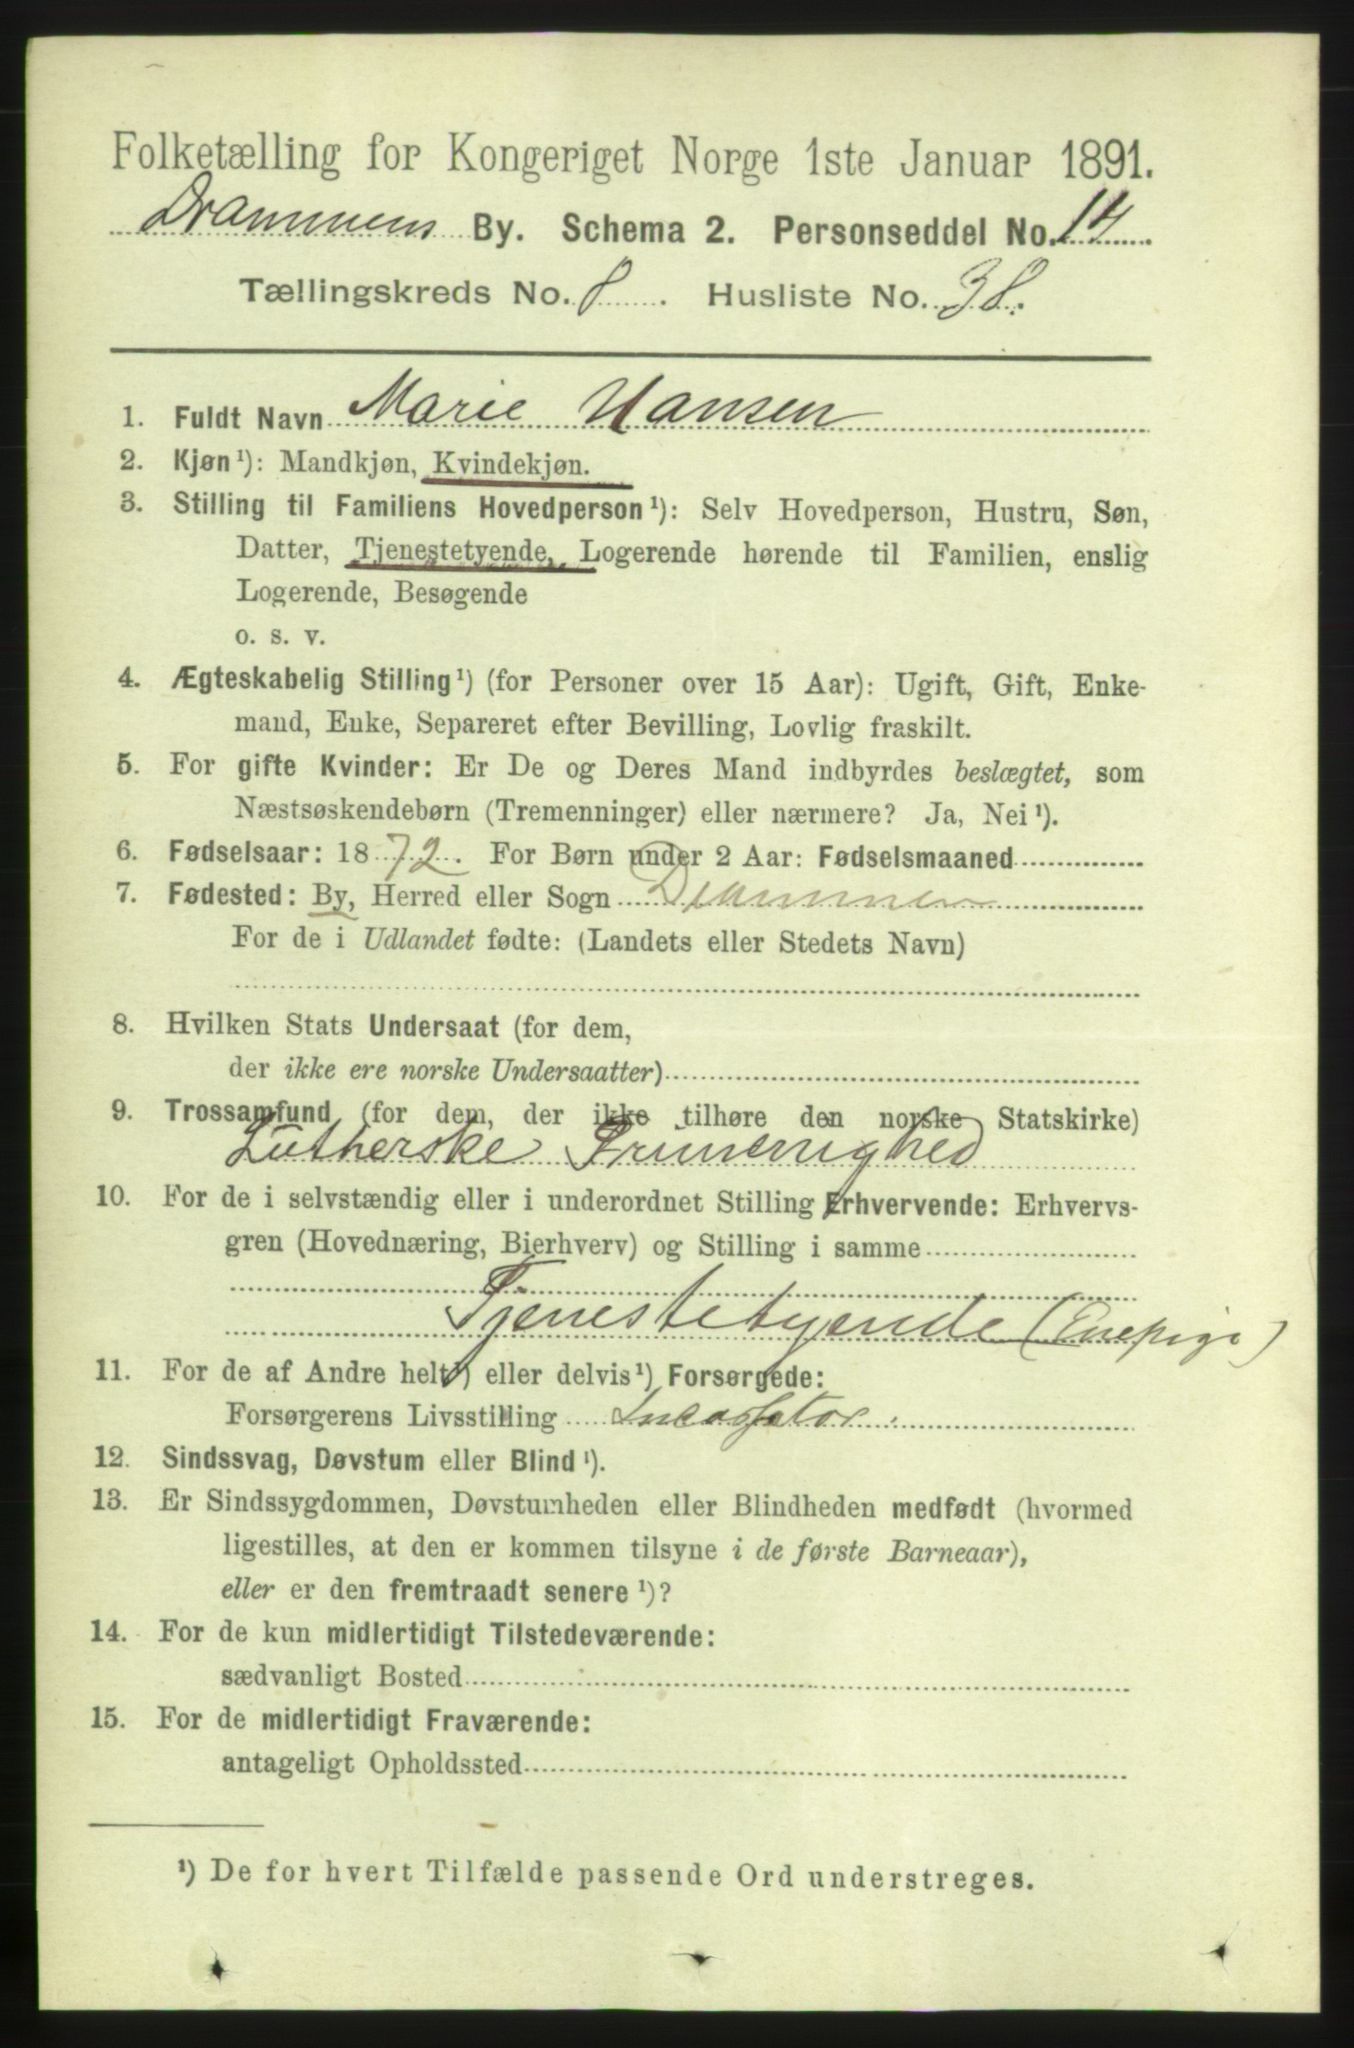 Folketælling for Kongeriget Norge 1ste Januar 1891.
Drammens By. Schema 2. Personseddel No. 14
Tællingskreds No. 8. Husliste No. 38.
1. Fuldt Navn Marie Hansen
2. Kjøn¹): Mandkjøn, Kvindekjøn.
3. Stilling til Familiens Hovedperson¹): Selv Hovedperson, Hustru, Søn,
Datter, Tjenestetyende, Logerende hørende til Familien, enslig
Logerende, Besøgende
o. s. v.
4. Ægteskabelig Stilling¹) (for Personer over 15 Aar): Ugift, Gift, Enke-
mand, Enke, Separeret efter Bevilling, Lovlig fraskilt.
5. For gifte Kvinder: Er De og Deres Mand indbyrdes beslægtet, som
Næstsøskendebørn (Tremenninger) eller nærmere? Ja, Nei¹).
6. Fødselsaar: 1872. For Børn under 2 Aar: Fødselsmaaned
7. Fødested: By, Herred eller Sogn Drammen
For de i Udlandet fødte: (Landets eller Stedets Navn)
8. Hvilken Stats Undersaat (for dem,
der ikke ere norske Undersaatter)
9. Trossamfund (for dem, der ikke tilhøre den norske Statskirke)
Lutherske Frimenighed
10. For de i selvstændig eller i underordnet Stilling Erhvervende: Erhvervs-
gren (Hovednæring, Bierhverv) og Stilling i samme
Tjenestetyende (Enepige)
11. For de af Andre helt¹) eller delvis¹) Forsørgede:
Forsørgerens Livsstilling Incassator.
12. Sindssvag, Døvstum eller Blind¹).
13. Er Sindssygdommen, Døvstumheden eller Blindheden medfødt (hvormed
ligestilles, at den er kommen tilsyne i de første Barneaar),
eller er den fremtraadt senere¹)?
14. For de kun midlertidigt Tilstedeværende:
sædvanligt Bosted
15. For de midlertidigt Fraværende:
antageligt Opholdssted
¹) De for hvert Tilfælde passende Ord understreges.